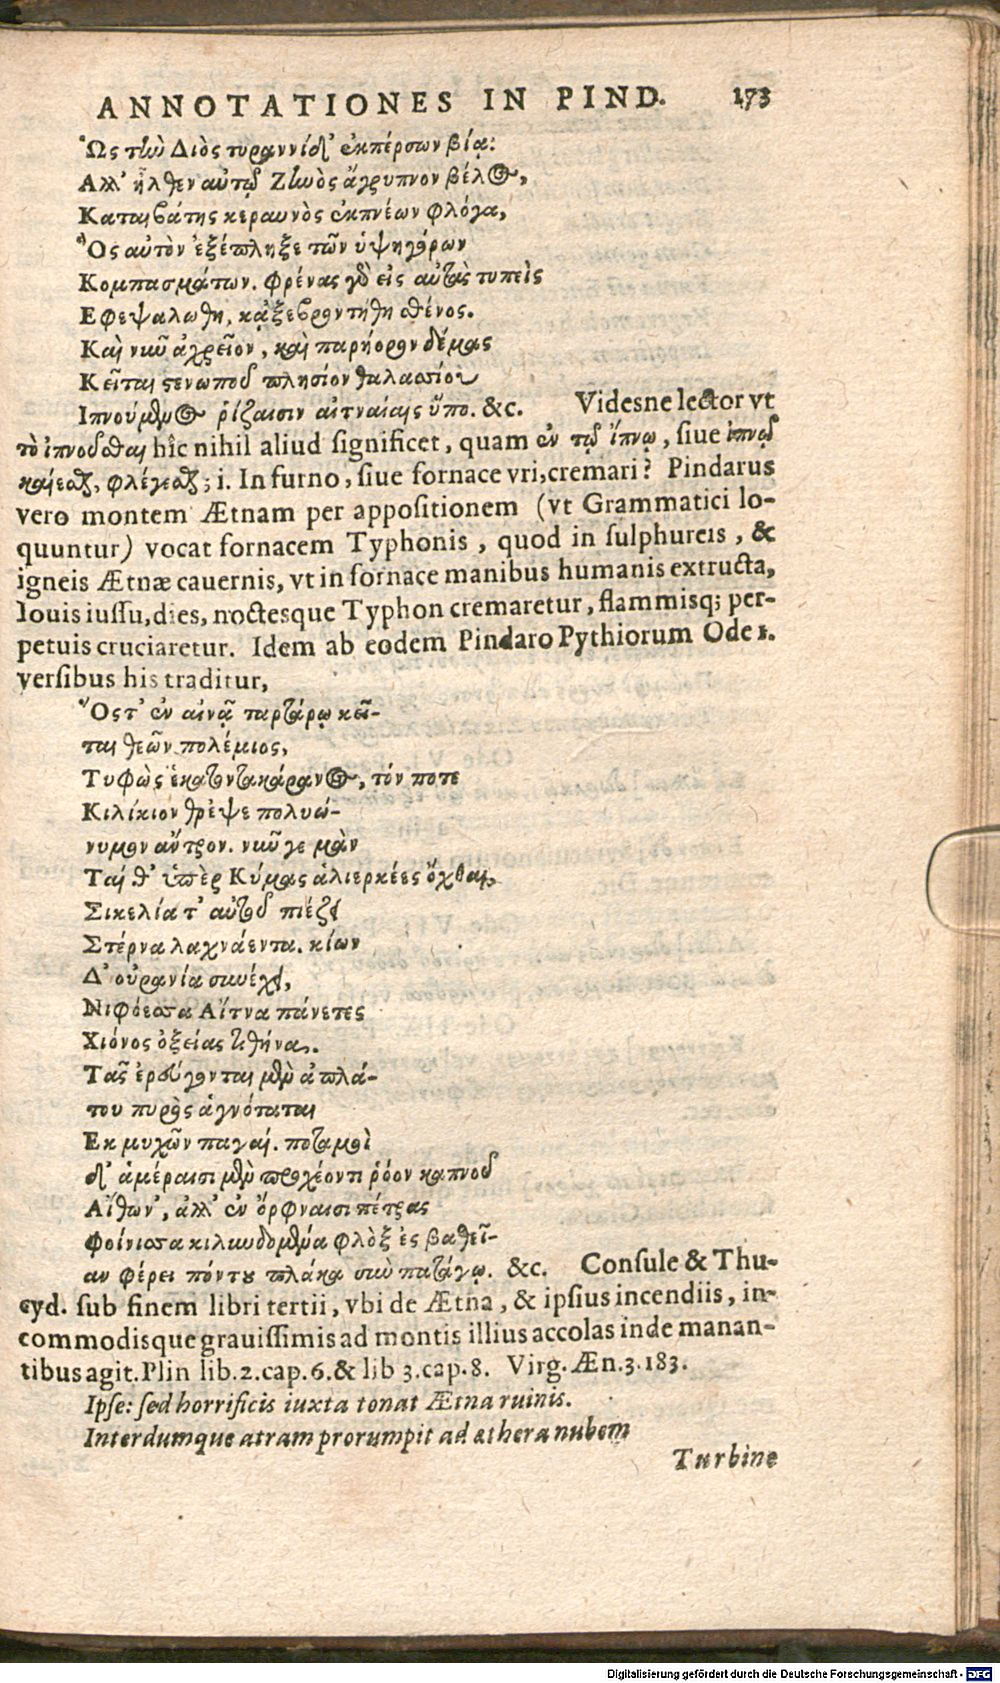 ANNOTATIONES IN PIND. 173
Ὡς τὴν Διὸς τυραννίδ' ἐκπέρσων βίᾳ:
Αλλ' ἦλθεν αὐτῷ Ζηνὸς ἄγρυπνον βέλος,
Καταιβάτης κεραυνὸς ἐκπνέων φλόγα,
Ὃς αὐτὸν ἐξέπληξε τῶν ὑψηγόρων
Κομπασμάτων. φρένας γὸ εἰς αὐτὰς τυπεὶς
Εφεψαλώθη, κᾀξεβροντήθη σθένος.
Καὶ νιῦ ἀχρεῖον, καὶ παρήορον δέμας
Κεῖται στενωποῦ πλησίον θαλασσίου
Ιπνούμενος ῥίζαισιν αἰτναίαις ὕπο. &c. Videsne lector vt
τὸ ἰπνοῦσθαι hîc nihil aliud significet, quam ἐν τῷ ἴπνῳ, siue ἰπνῷ
καίεσθαι, φλέγεσθαι; i. In furno, siue fornace vri, cremari? Pindarus
vero montem Ætnam per appositionem (vt Grammatici lo-
quuntur) vocat fornacem Typhonis, quod in sulphureis, &
igneis Ætnæ cauernis, vt in fornace manibus humanis extructa,
Iouis iussu, dies, noctesque Typhon cremaretur, flammisq; per-
petuis cruciaretur. Idem ab eodem Pindaro Pythiorum Ode 1.
versibus his traditur,
Ὅς τ' ἐν αἰνᾷ ταρτάρῳ κεῖ-
ται θεῶν πολέμιος,
Τυφὼς ἑκατοντακάρανος, τόν ποτε
Κιλίκιον θρέψε πολυώ-
νυμον ἄντρον. νῦν γε μὰν
Ταί θ' ὑπὲρ Κύμας ἁλιερκέες ὄχθαι,
Σικελία τ' αὐτοῦ πιέζει
Στέρνα λαχνάεντα. κίων
Δ' οὐρανία συνέχει,
Νιφόεσσα Αἴτνα πάνετες
Χιόνος ὀξείας τιθήνα.
Τᾶς ἐρεύγονται μὲν ἀπλά-
του πυρὸς ἁγνόταται
Εκ μυχῶν παγαί. ποταμοὶ
δ' ἁμέραισι μὲν προχέοντι ῥόον καπνοῦ
Αἴθων', ἀλλ' ἐν ὄρφναισι πέτρας
Φοίνισσα κυλινδομένα φλὸξ ἐς βαθεῖ-
αν φέρει πόντου πλάκα σὺν πατάγῳ. &c. Consule & Thu-
cyd. sub finem libri tertii, vbi de Ætna, & ipsius incendiis, in-
commodisque grauissimis ad montis illius accolas inde manan-
tibus agit. Plin lib. 2. cap. 6. & lib 3. cap. 8. Virg. Æn. 3. 183.
Ipse: sed horrificis iuxta tonat Ætna ruinis.
Interdumque atram prorumpit ad æthera nubem
Turbine
Digitalisierung gefördert durch die Deutsche Forschungsgemeinschaft - DFG